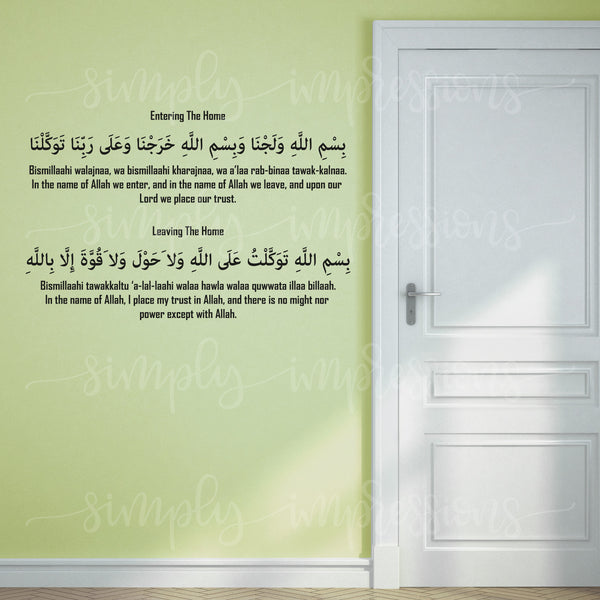 simply impressions
Entering The Home
بِسْمِ اللَّهِ وَلَجْنَا وَبِسْمِ اللَّهِ خَرَجْنَا وَعَلَى رَبِّنَا تَوَكَّلْنَا
Bismillaahi walajnaa, wa bismillaahi kharajnaa, wa a'laa rab-binaa tawak-kalnaa.
In the name of Allah we enter, and in the name of Allah we leave, and upon our
Lord we place our trust.
simply impressions
Leaving The Home
بِسْمِ اللَّهِ تَوَكَّلْتُ عَلَى اللَّهِ وَلاَ حَوْلَ وَلاَ قُوَّةَ إِلَّا بِاللَّهِ
Bismillaahi tawakkaltu ‘a-lal-laahi walaa hawla walaa quwwata illaa billaah.
In the name of Allah, I place my trust in Allah, and there is no might nor
power except with Allah.
simply impressions
simply impressions